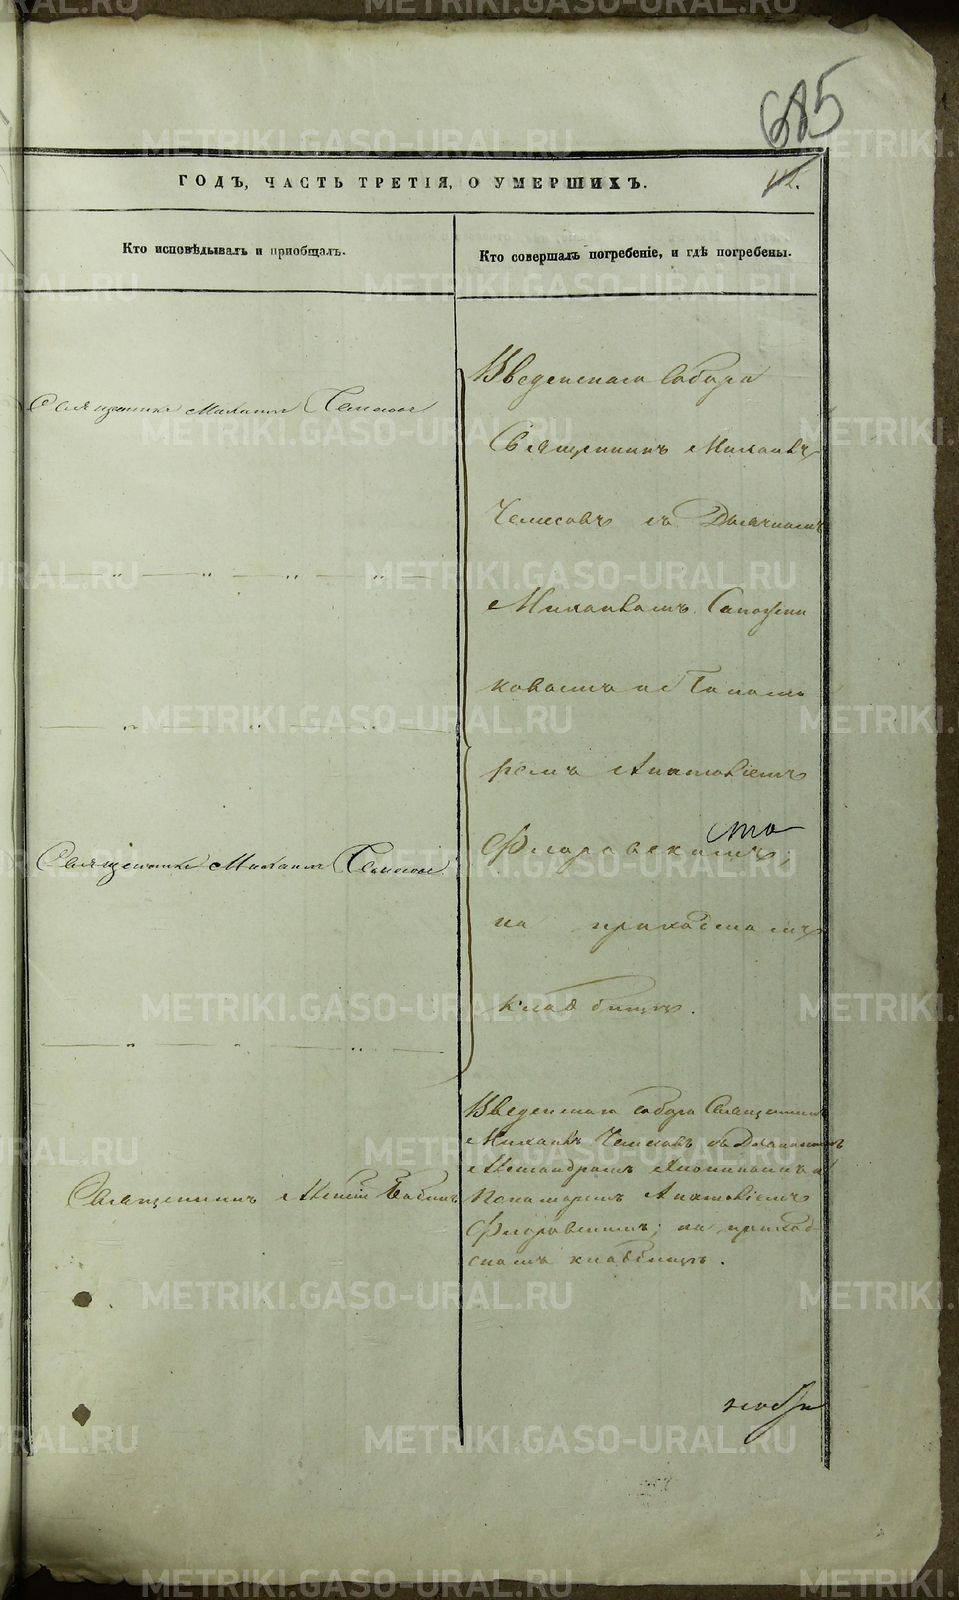 685
ГОДЪ, ЧАСТЬ ТРЕТІЯ, О УМЕРШИХЪ.
Кто исповѣдывалъ и пріобщалъ.
Кто совершалъ погребеніе, и гдѣ погребены.
Священникъ Михаилъ
Введенскаго Собора
Священникъ Михаилъ
Чемесовъ съ Дьячкомъ
Михаиломъ Сапожни
ковымъ и Понома
ремъ Анатоліемъ
Флоровскимъ;
на приходскомъ
кладбищѣ.
Священникъ Михаилъ
Введенскаго собора Священникъ
Михаилъ Чемесовъ съ Дьячкомъ
Александромъ
Пономаремъ Анатоліемъ
Флоровскимъ; на приход-
скомъ кладбищѣ.
Священникъ
METRIKI.GASO-URAL.RU